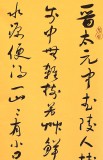 晉太元中武陵人
步中無雜樹芳草鮮
水源便得一山々有小口